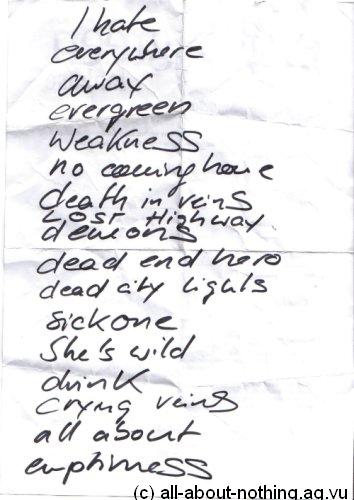 I hate
everywhere
away
evergreen
weakness
no coming home
death in veins
Lost Highway
demons
dead end hero
dead city lights
sick one
She's wild
drink
crying veins
all about
emptiness
(c) all-about-nothing.ag.vu